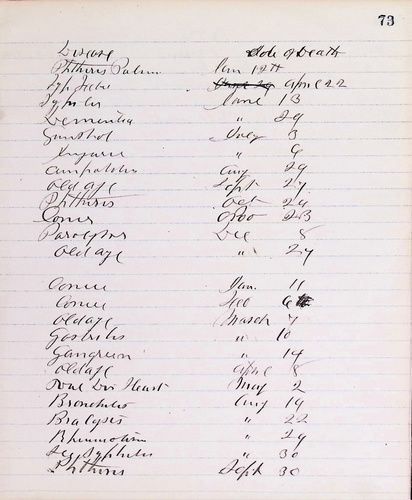 73
Disease Date of Death
Phthisis Pulm Jan 12th
April 22
Syphilis June 13
Dementia " 29
Gunshot July 3
" 9
Amputation Aug 29
Old age Sept 27
Phthisis Oct 29
23
Paralysis Dec 8
Old age " 27
Jan. 11
6th
Old age March 7
Gastritis " 10
Gangreen " 14
Old age April 8
Heart May 2
Bronchitis Aug 19
" 22
Rheumatism " 29
Syphilis " 30
Phthisis Sept 30